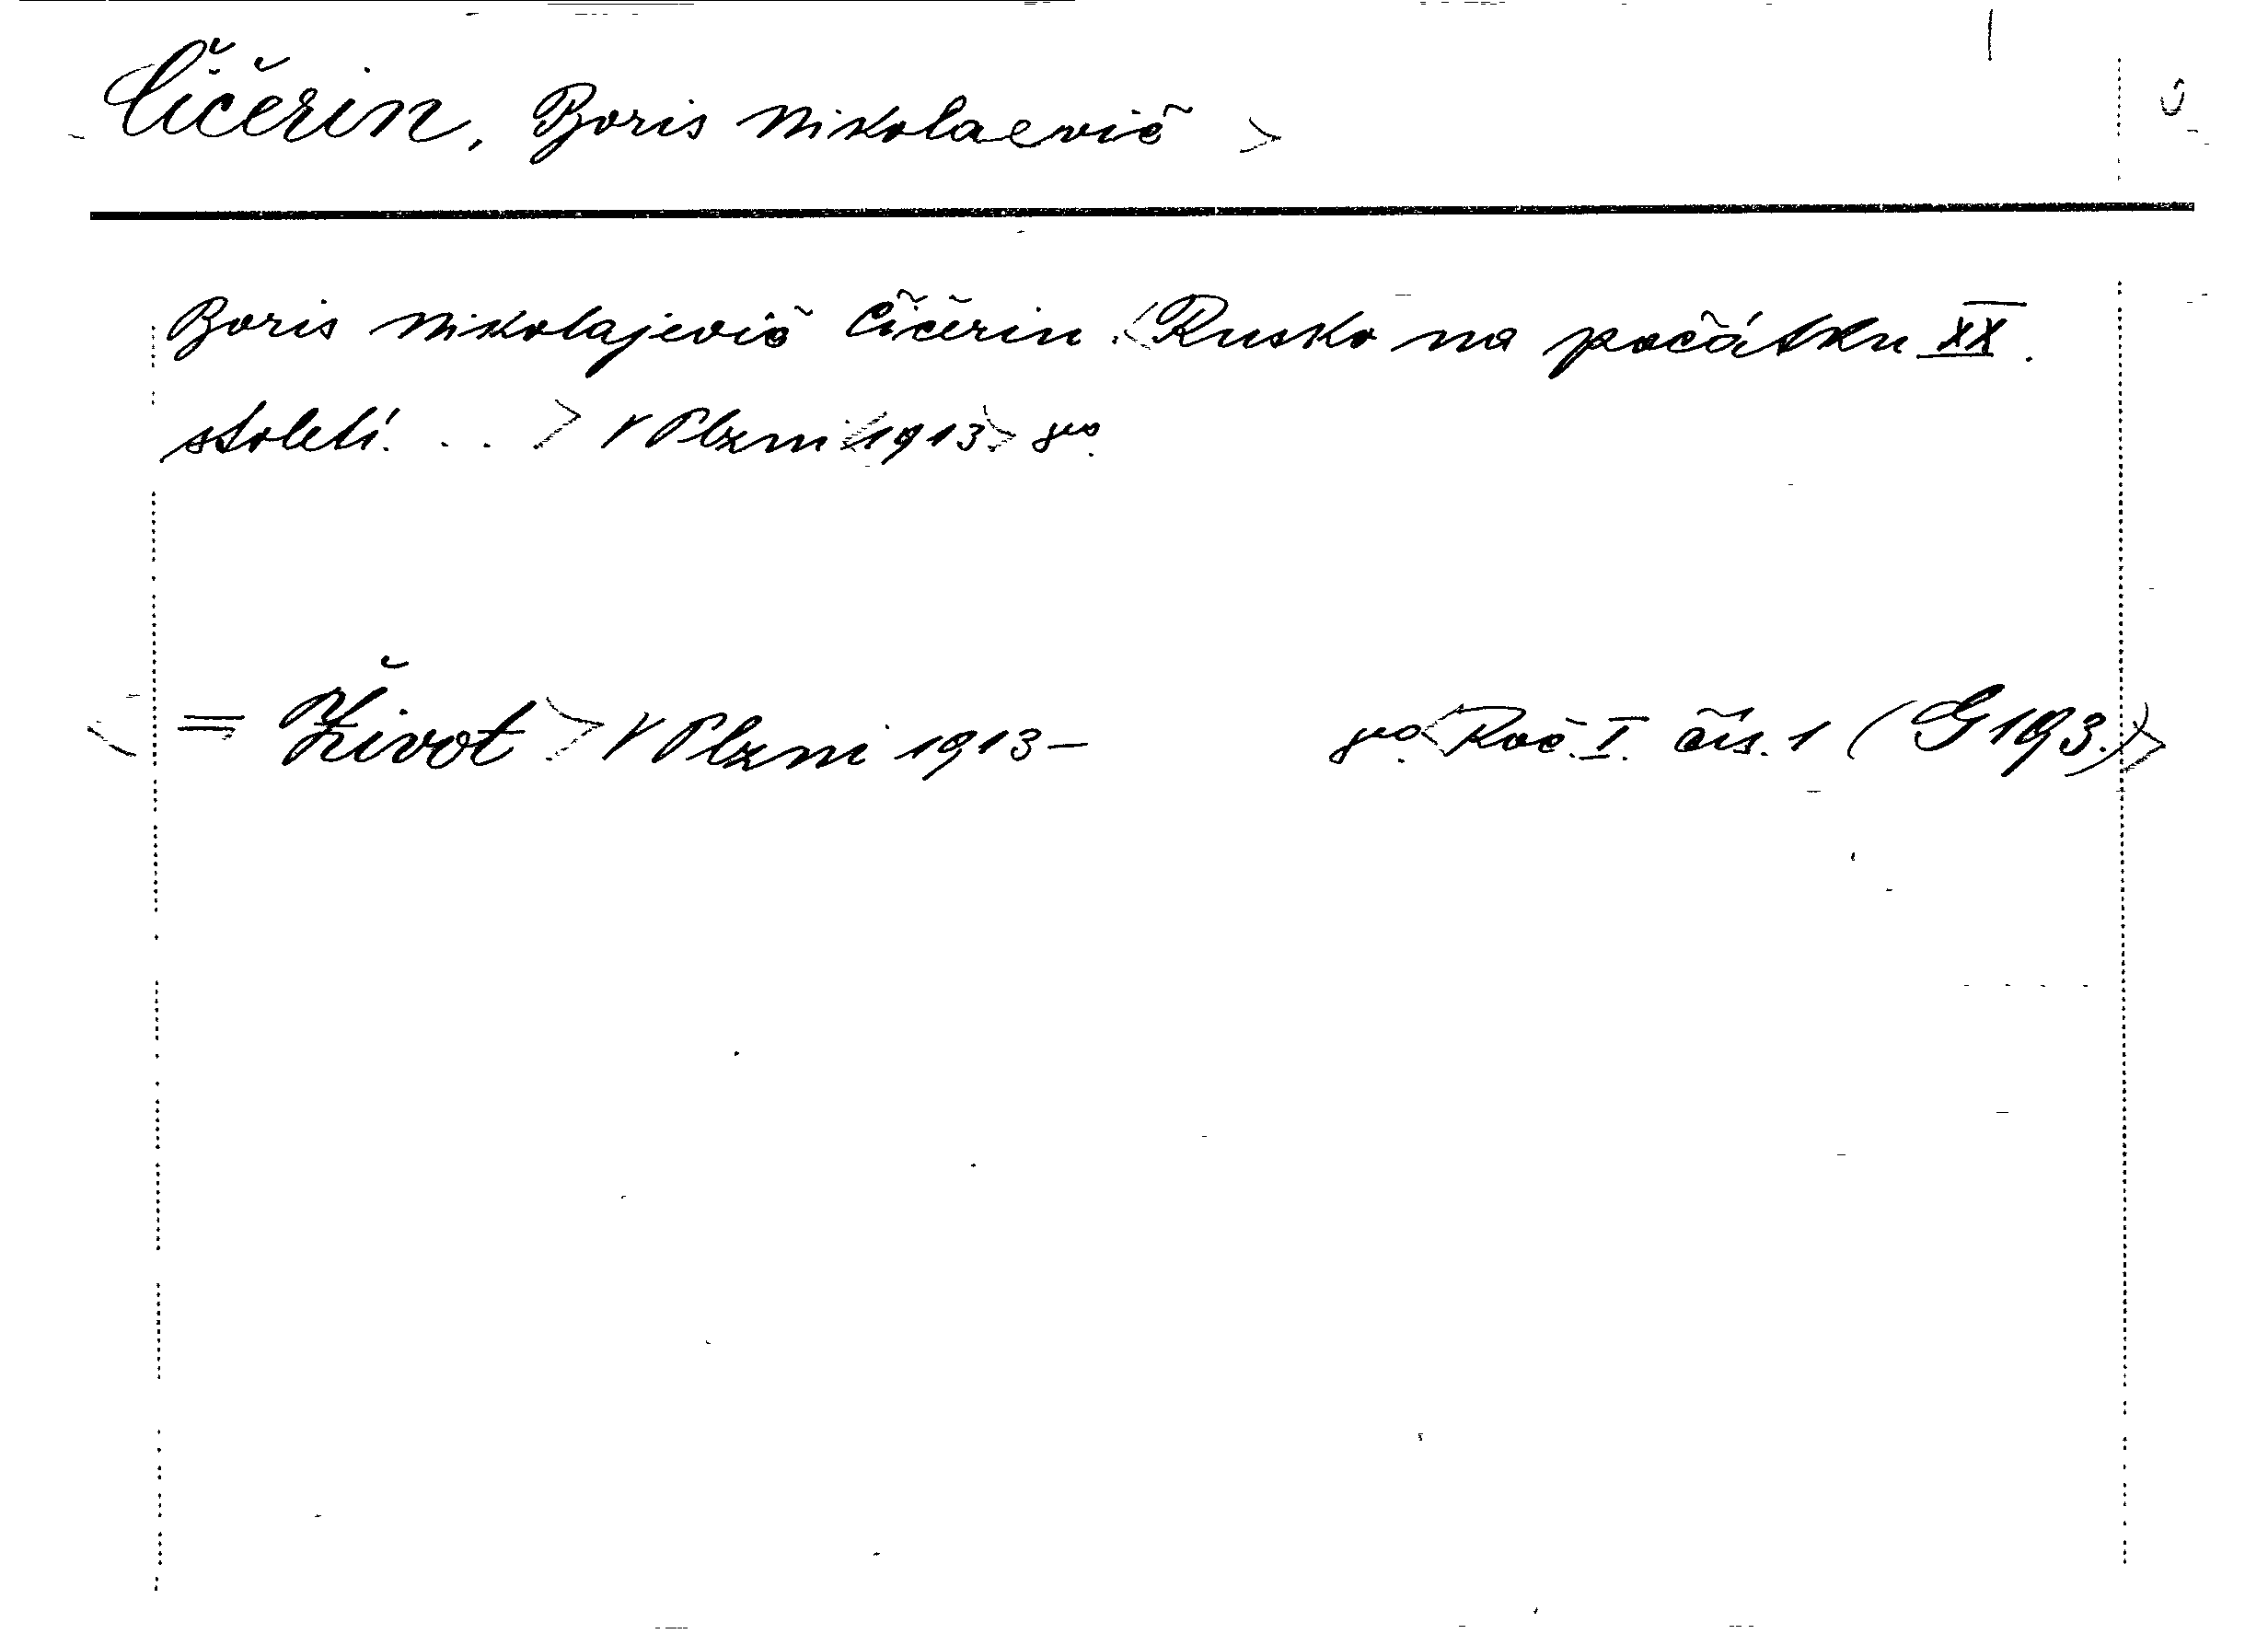 Čičerin, Boris Nikolaevič >
Boris Nikolajevič Čičerin. <Rusko na počátku XX.
století. . . > V Plzni <1913.> 8°.
= Život > V Plzni 1913 – 8°. <Roč. I. čís. 1 (G 193.)>